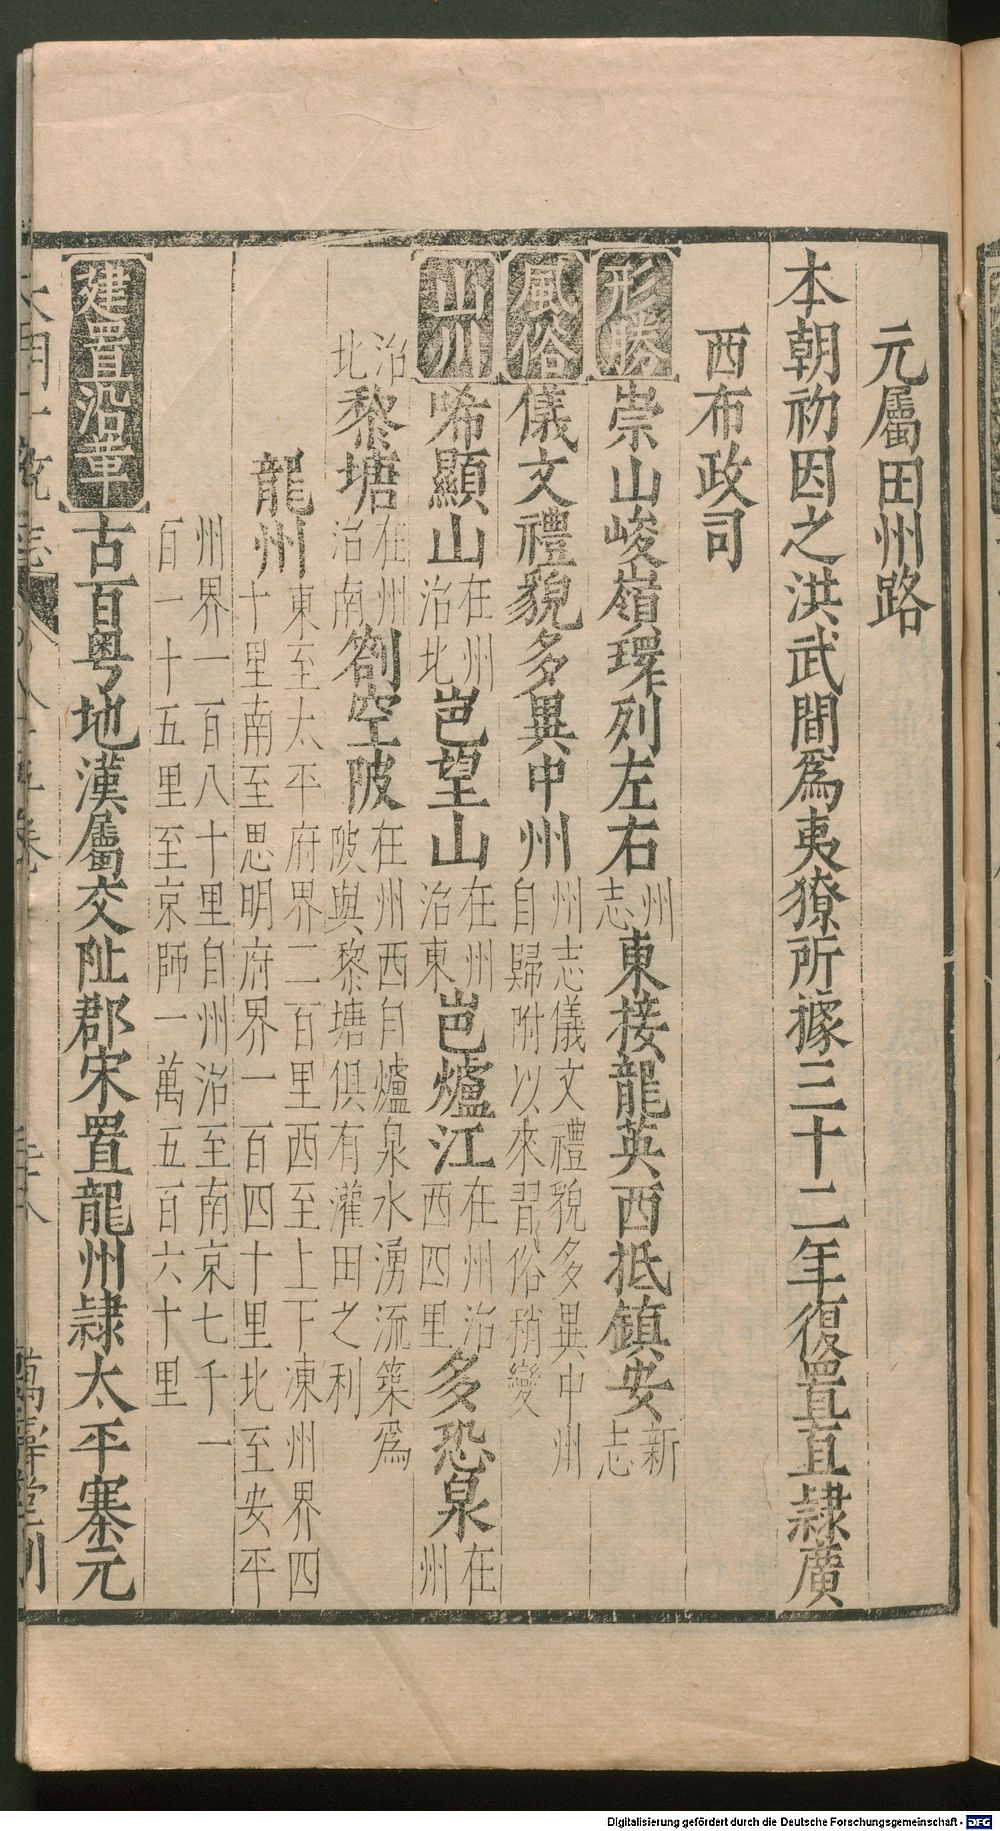 元屬田州路
本朝初因之洪武間為夷獠所據三十二年復置直隸廣
西布政司
形勝崇山峻嶺環列左右州志東接龍英西抵鎮安新志
風俗儀文禮貌多異中州州志儀文禮貌多異中州自歸附以來習俗稍變
山川唏顯山在州治北岜望山在州治東岜爐江在州治西四里多恐泉在州
治北黎塘在州治南劄空陂在州西自爐泉水湧流築為陂與黎塘俱有灌田之利
龍州東至太平府界二百里西至上下凍州界四十里南至思明府界一百四十里北至安平
州界一百八十里自州治至南京七千一百一十五里至京師一萬五百六十里
建置沿革古百粵地漢屬交阯郡宋置龍州隸太平寨元
萬壽堂刊
Digitalisierung gefördert durch die Deutsche Forschungsgemeinschaft - DFG